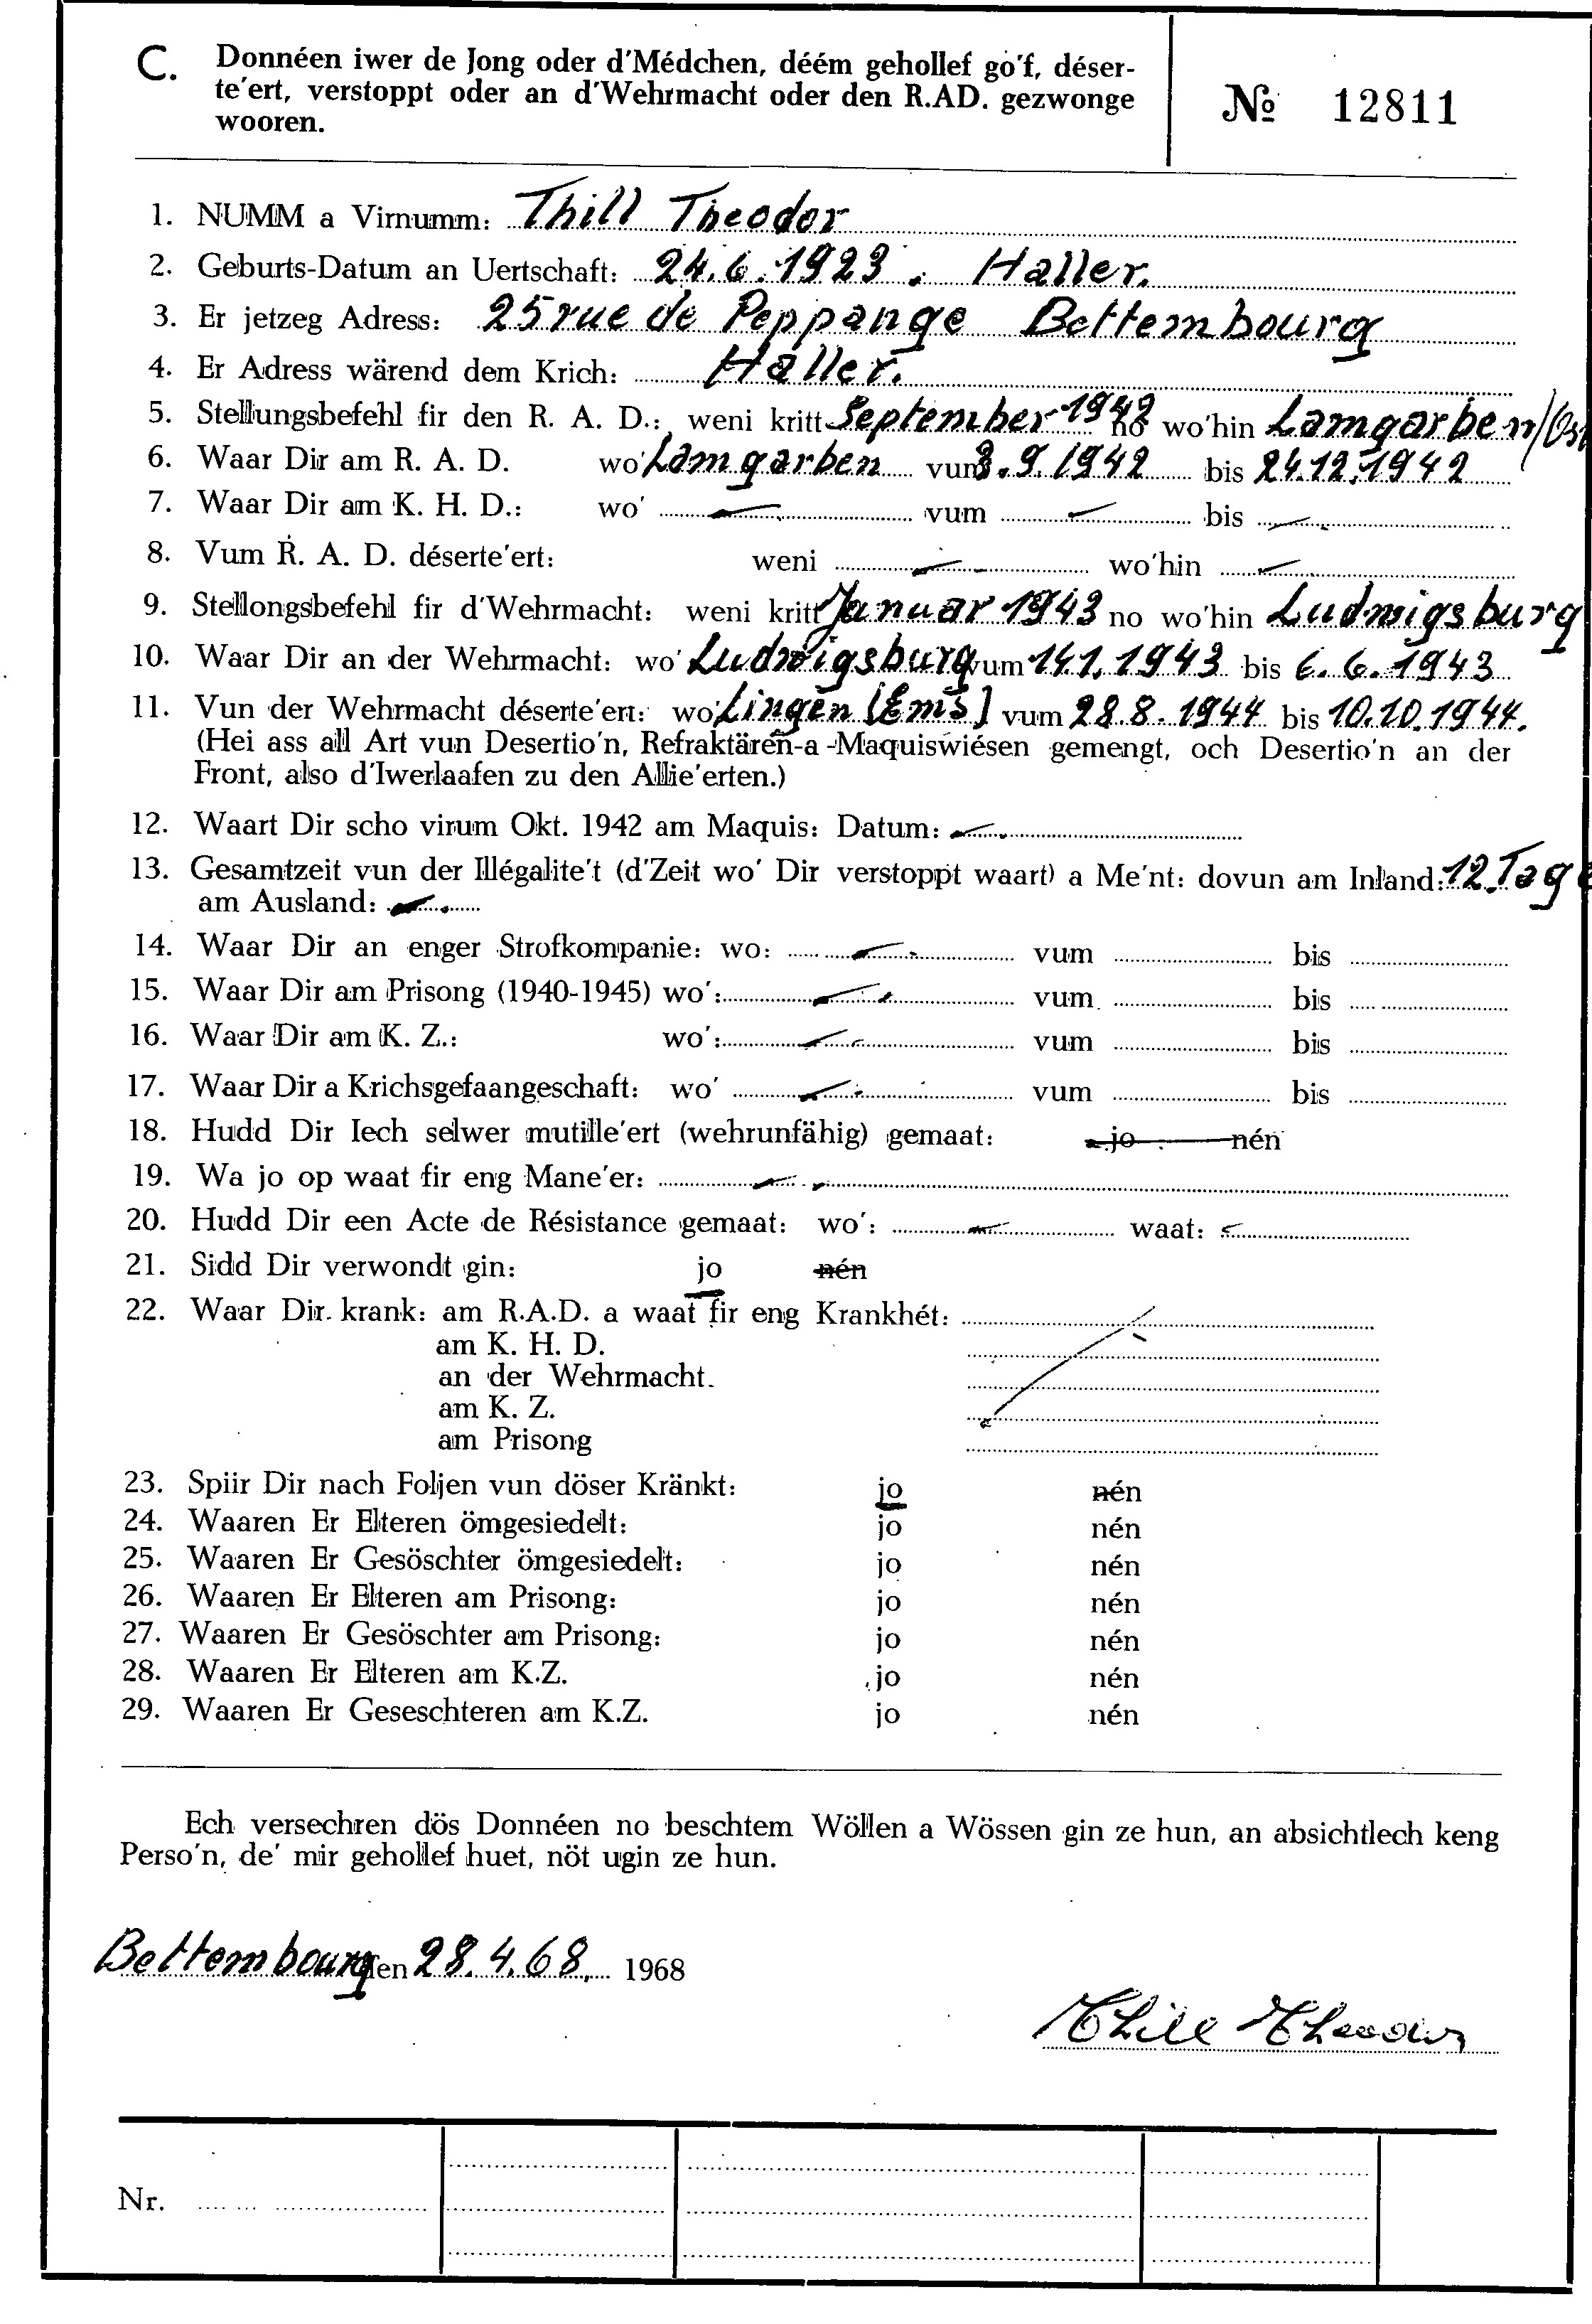 C. Donnéen iwer de Jong oder d'Médchen, déém gehollef go'f, déser-
te'ert, verstoppt oder an d'Wehrmacht oder den R.AD. gezwonge
wooren.
№ 12811
1. NUMM a Virnumm: Thill Theodor
2. Geburts-Datum an Uertschaft: 24.6.1923. Haller.
3. Er jetzeg Adress: 25 rue de Peppange Bettembourg
4. Er Adress wärend dem Krich: Haller.
5. Stellungsbefehl fir den R. A. D.: weni kritt September 1942 no wo'hin Lamgarben/
6. Waar Dir am R. A. D. wo' Lamgarben vum 3.9.1942 bis 24.12.1942
7. Waar Dir am K. H. D.: wo' vum bis
8. Vum R. A. D. déserte'ert: weni wo'hin
9. Stellongsbefehl fir d'Wehrmacht: weni kritt Januar 1943 no wo'hin Ludwigsburg
10. Waar Dir an der Wehrmacht: wo' Ludwigsburg vum 14.1.1943 bis 6.6.1943
11. Vun der Wehrmacht déserte'ert: wo' Lingen (Ems) vum 28.8.1944 bis 10.10.1944.
(Hei ass all Art vun Desertio'n, Refraktären-a-Maquiswiésen gemengt, och Desertio'n an der
Front, also d'Iwerlaafen zu den Allie'erten.)
12. Waart Dir scho virum Okt. 1942 am Maquis: Datum:
13. Gesamtzeit vun der Illégalite't (d'Zeit wo' Dir verstoppt waart) a Me'nt: dovun am Inland: 12 Tage
am Ausland:
14. Waar Dir an enger Strofkompanie: wo: vum bis
15. Waar Dir am Prisong (1940-1945) wo': vum bis
16. Waar Dir am K. Z.: wo': vum bis
17. Waar Dir a Krichsgefaangeschaft: wo' vum bis
18. Hudd Dir Iech selwer mutille'ert (wehrunfähig) gemaat: jo nén
19. Wa jo op waat fir eng Mane'er:
20. Hudd Dir een Acte de Résistance gemaat: wo': waat:
21. Sidd Dir verwondt gin: jo nén
22. Waar Dir krank: am R.A.D. a waat fir eng Krankhét:
am K. H. D.
an der Wehrmacht.
am K. Z.
am Prisong
23. Spiir Dir nach Foljen vun döser Kränkt: jo nén
24. Waaren Er Elteren ömgesiedelt: jo nén
25. Waaren Er Gesöschter ömgesiedelt: jo nén
26. Waaren Er Elteren am Prisong: jo nén
27. Waaren Er Gesöschter am Prisong: jo nén
28. Waaren Er Elteren am K.Z. jo nén
29. Waaren Er Geseschteren am K.Z. jo nén
Ech versechren dös Donnéen no beschtem Wöllen a Wössen gin ze hun, an absichtlech keng
Perso'n, de' mir gehollef huet, nöt ugin ze hun.
Bettembourg den 28.4.68. 1968
Thill Theodor
Nr.